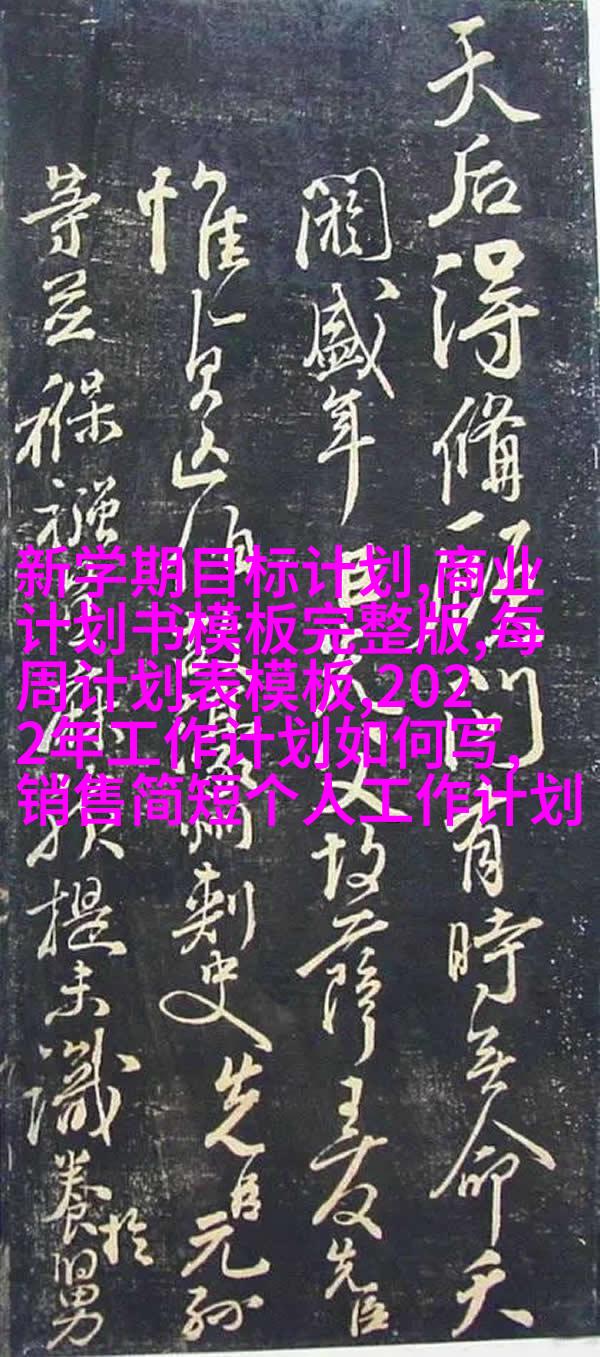 天后得備門有時無命夭
閼盛年臣父故薛王友先臣
惟貞亡伯州刺史先臣元孫
等並褓襁麻孩提未識養於舅
新学期目标计划,商业
计划书模板完整版,每
周计划表模板,202
2年工作计划如何写,
销售简短个人工作计划